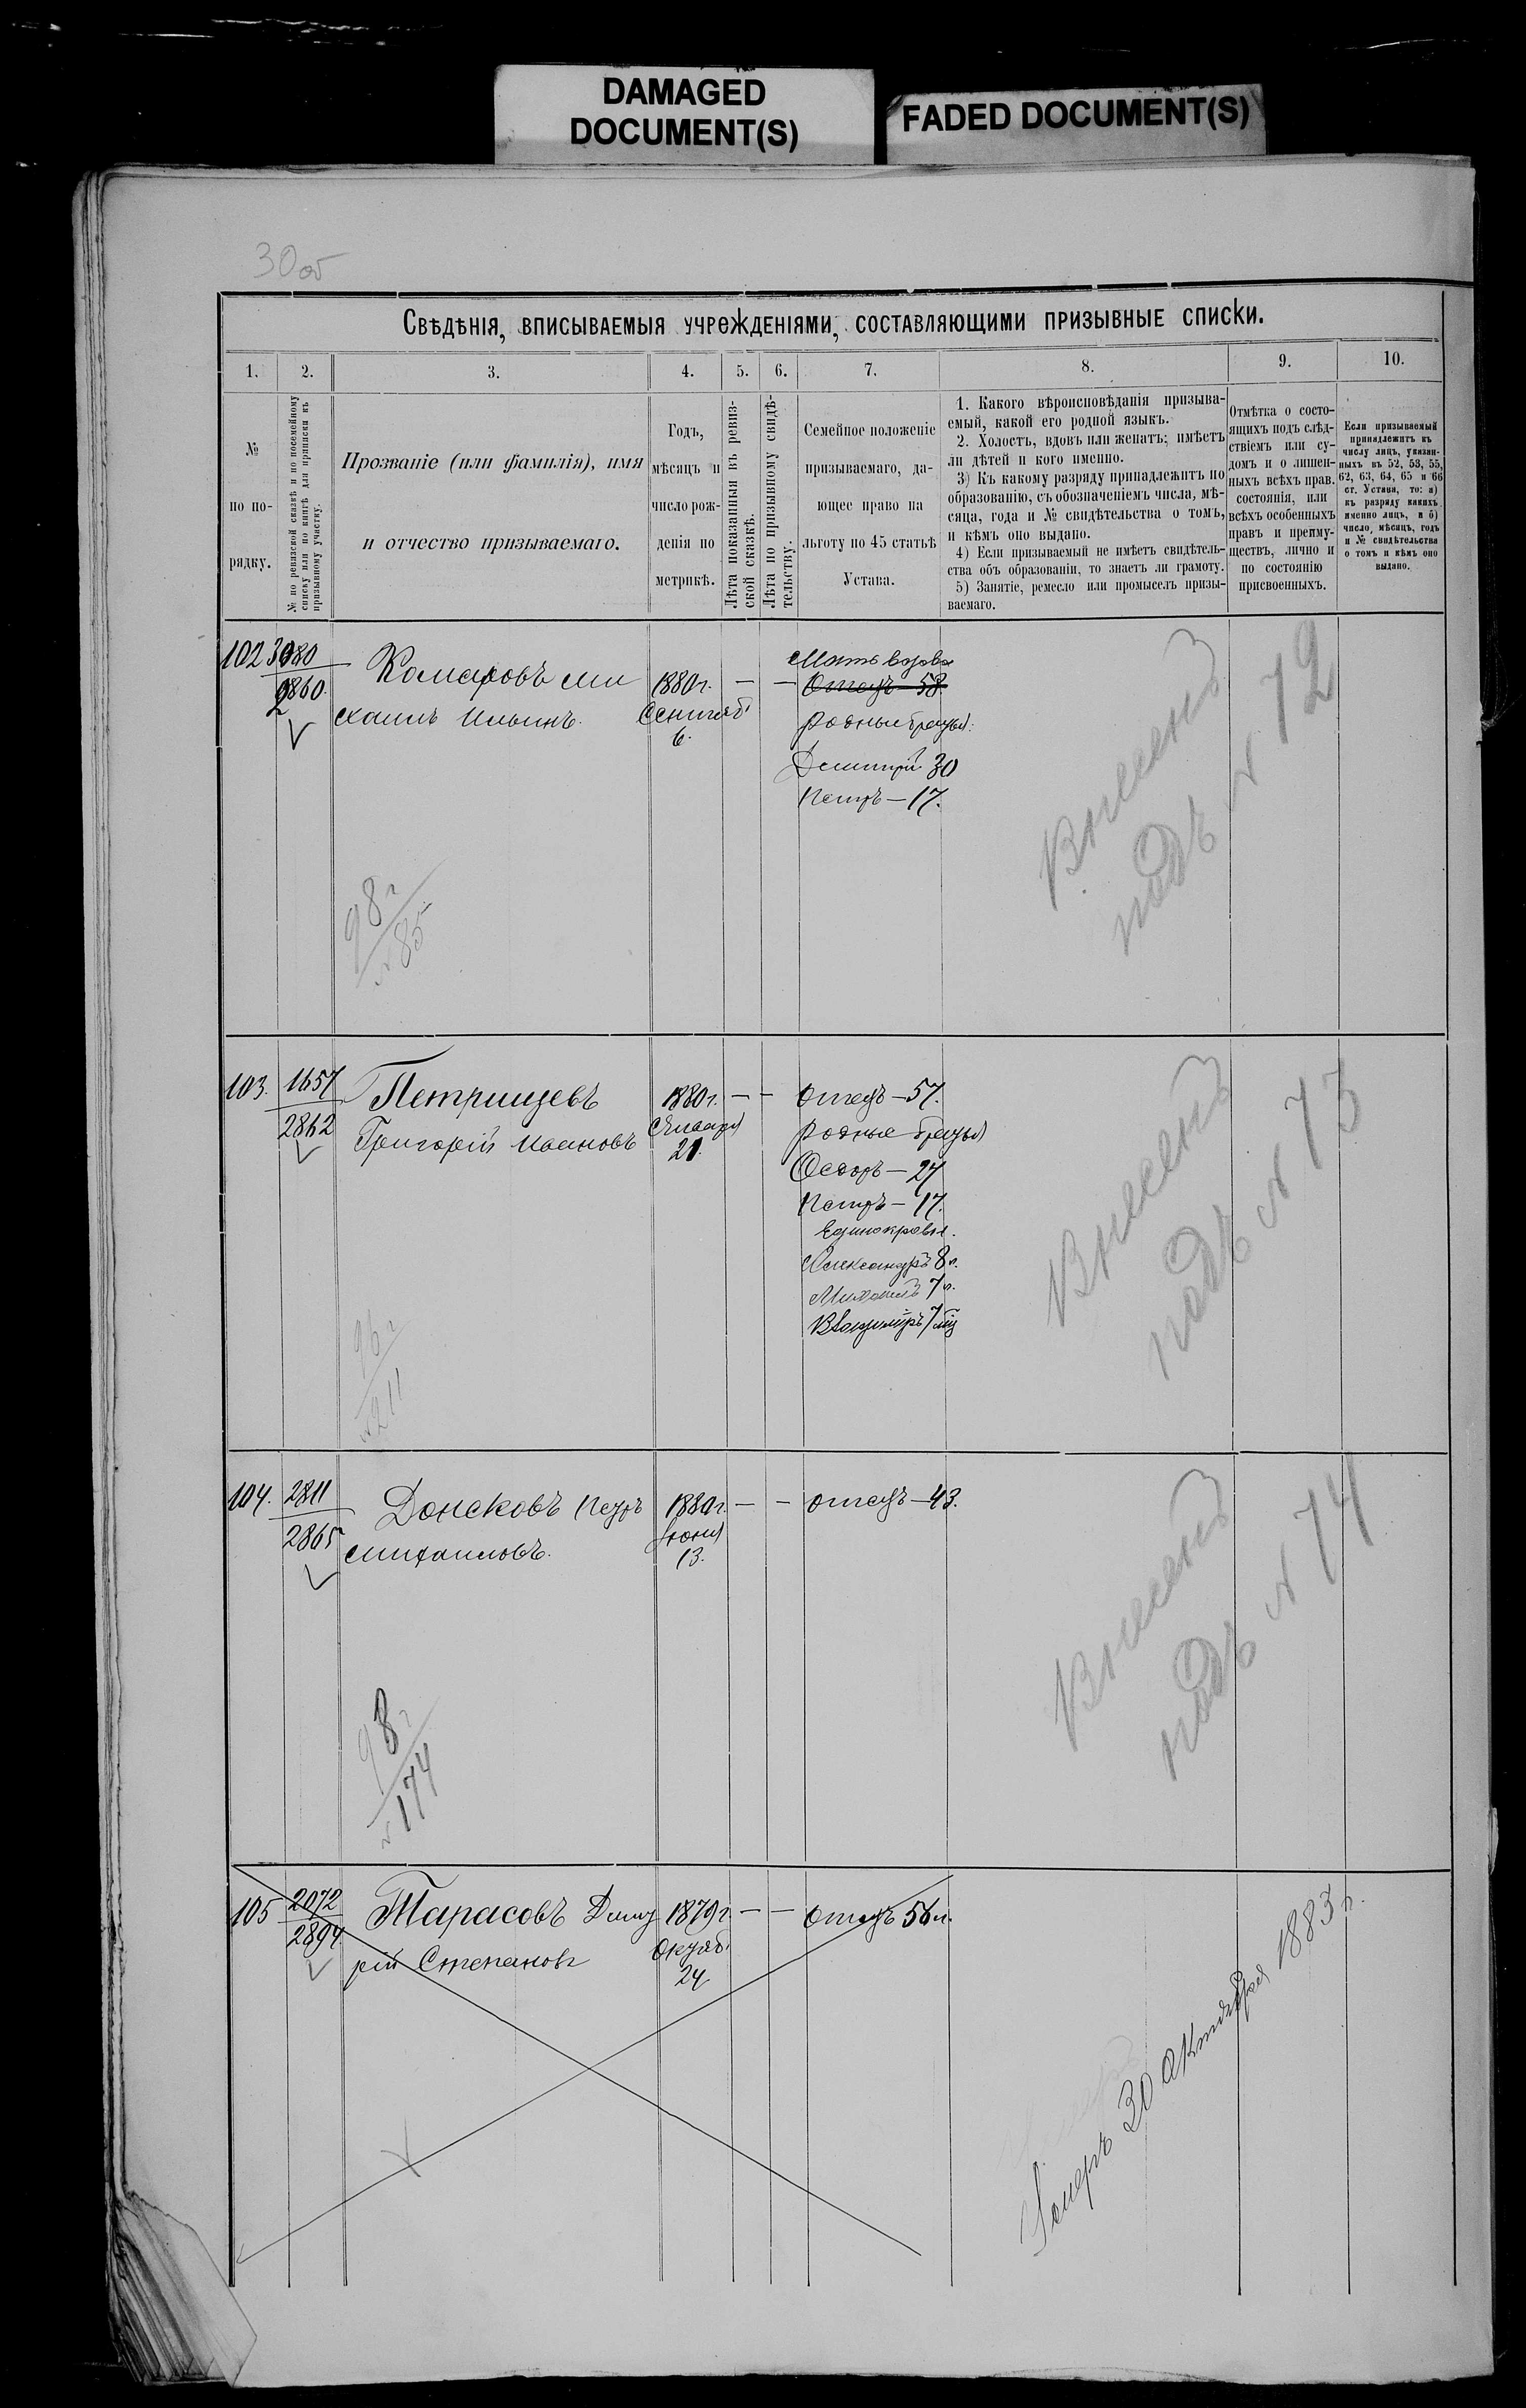 DAMAGED
DOCUMENT(S)
FADED DOCUMENT(S)
30об
Свѣдѣнія, вписываемыя учрежденіями, составляющими призывные списки.
1. 2. 3. 4. 5. 6. 7. 8. 9. 10.
№
по по-
рядку.
№ по ревизской сказкѣ и по посемейному
списку или по книгѣ для приписки къ
призывному участку.
Прозваніе (или фамилія), имя
и отчество призываемаго.
Годъ,
мѣсяцъ и
число рож-
денія по
метрикѣ.
Лѣта показанныя въ ревиз-
ской сказкѣ.
Лѣта по призывному свидѣ-
тельству.
Семейное положеніе
призываемаго, да-
ющее право на
льготу по 45 статьѣ
Устава.
1. Какого вѣроисповѣданія призыва-
емый, какой его родной языкъ.
2. Холостъ, вдовъ или женатъ; имѣетъ
ли дѣтей и кого именно.
3) Къ какому разряду принадлежитъ по
образованію, съ обозначеніемъ числа, мѣ-
сяца, года и № свидѣтельства о томъ,
и кѣмъ оно выдано.
4) Если призываемый не имѣетъ свидѣтель-
ства объ образованіи, то знаетъ ли грамоту.
5) Занятіе, ремесло или промыселъ призы-
ваемаго.
Отмѣтка о состо-
ящихъ подъ слѣд-
ствіемъ или су-
домъ и о лишен-
ныхъ всѣхъ прав.
состоянія, или
всѣхъ особенныхъ
правъ и преиму-
ществъ, лично и
по состоянію
присвоенныхъ.
Если призываемый
принадлежитъ къ
числу лицъ, указан-
ныхъ въ 52, 53, 55,
62, 63, 64, 65 и 66
ст. Устава, то: а)
къ разряду какихъ
именно лицъ, и б)
число, мѣсяцъ, годъ
и № свидѣтельства
о томъ и кѣмъ оно
выдано.
102 3080
2860.
Комаровъ Ми
хаилъ Ильинъ.
1880г.
Сентяб
6.
— —
Мать вдова
Отецъ — 58
родные братья:
Дмитрій 30
Петръ — 17.
Внесенъ
подъ № 72
98г
№ 85
103. 1657
2862
Петрищевъ
Григорій Ивановъ
1880г.
Января
21.
— —
Отецъ — 57.
родные братья
Ѳедоръ — 27
Петръ — 17.
Единокровн.
Александръ 8 л.
Михаилъ 7 л.
Владиміръ 7 мѣ
Внесенъ
подъ № 73
96г
№ 211
104. 2811
2865
Донсковъ Петръ
Михаиловъ.
1880г.
Іюня
13.
— —
отецъ — 43.
Внесенъ
подъ № 74
98г
№ 174
105 2072
2894
Тарасовъ Дмит
рій Степановъ
1879г.
Октяб
24
— —
отецъ 56 л.
Померъ 30 Октября 1883 г.